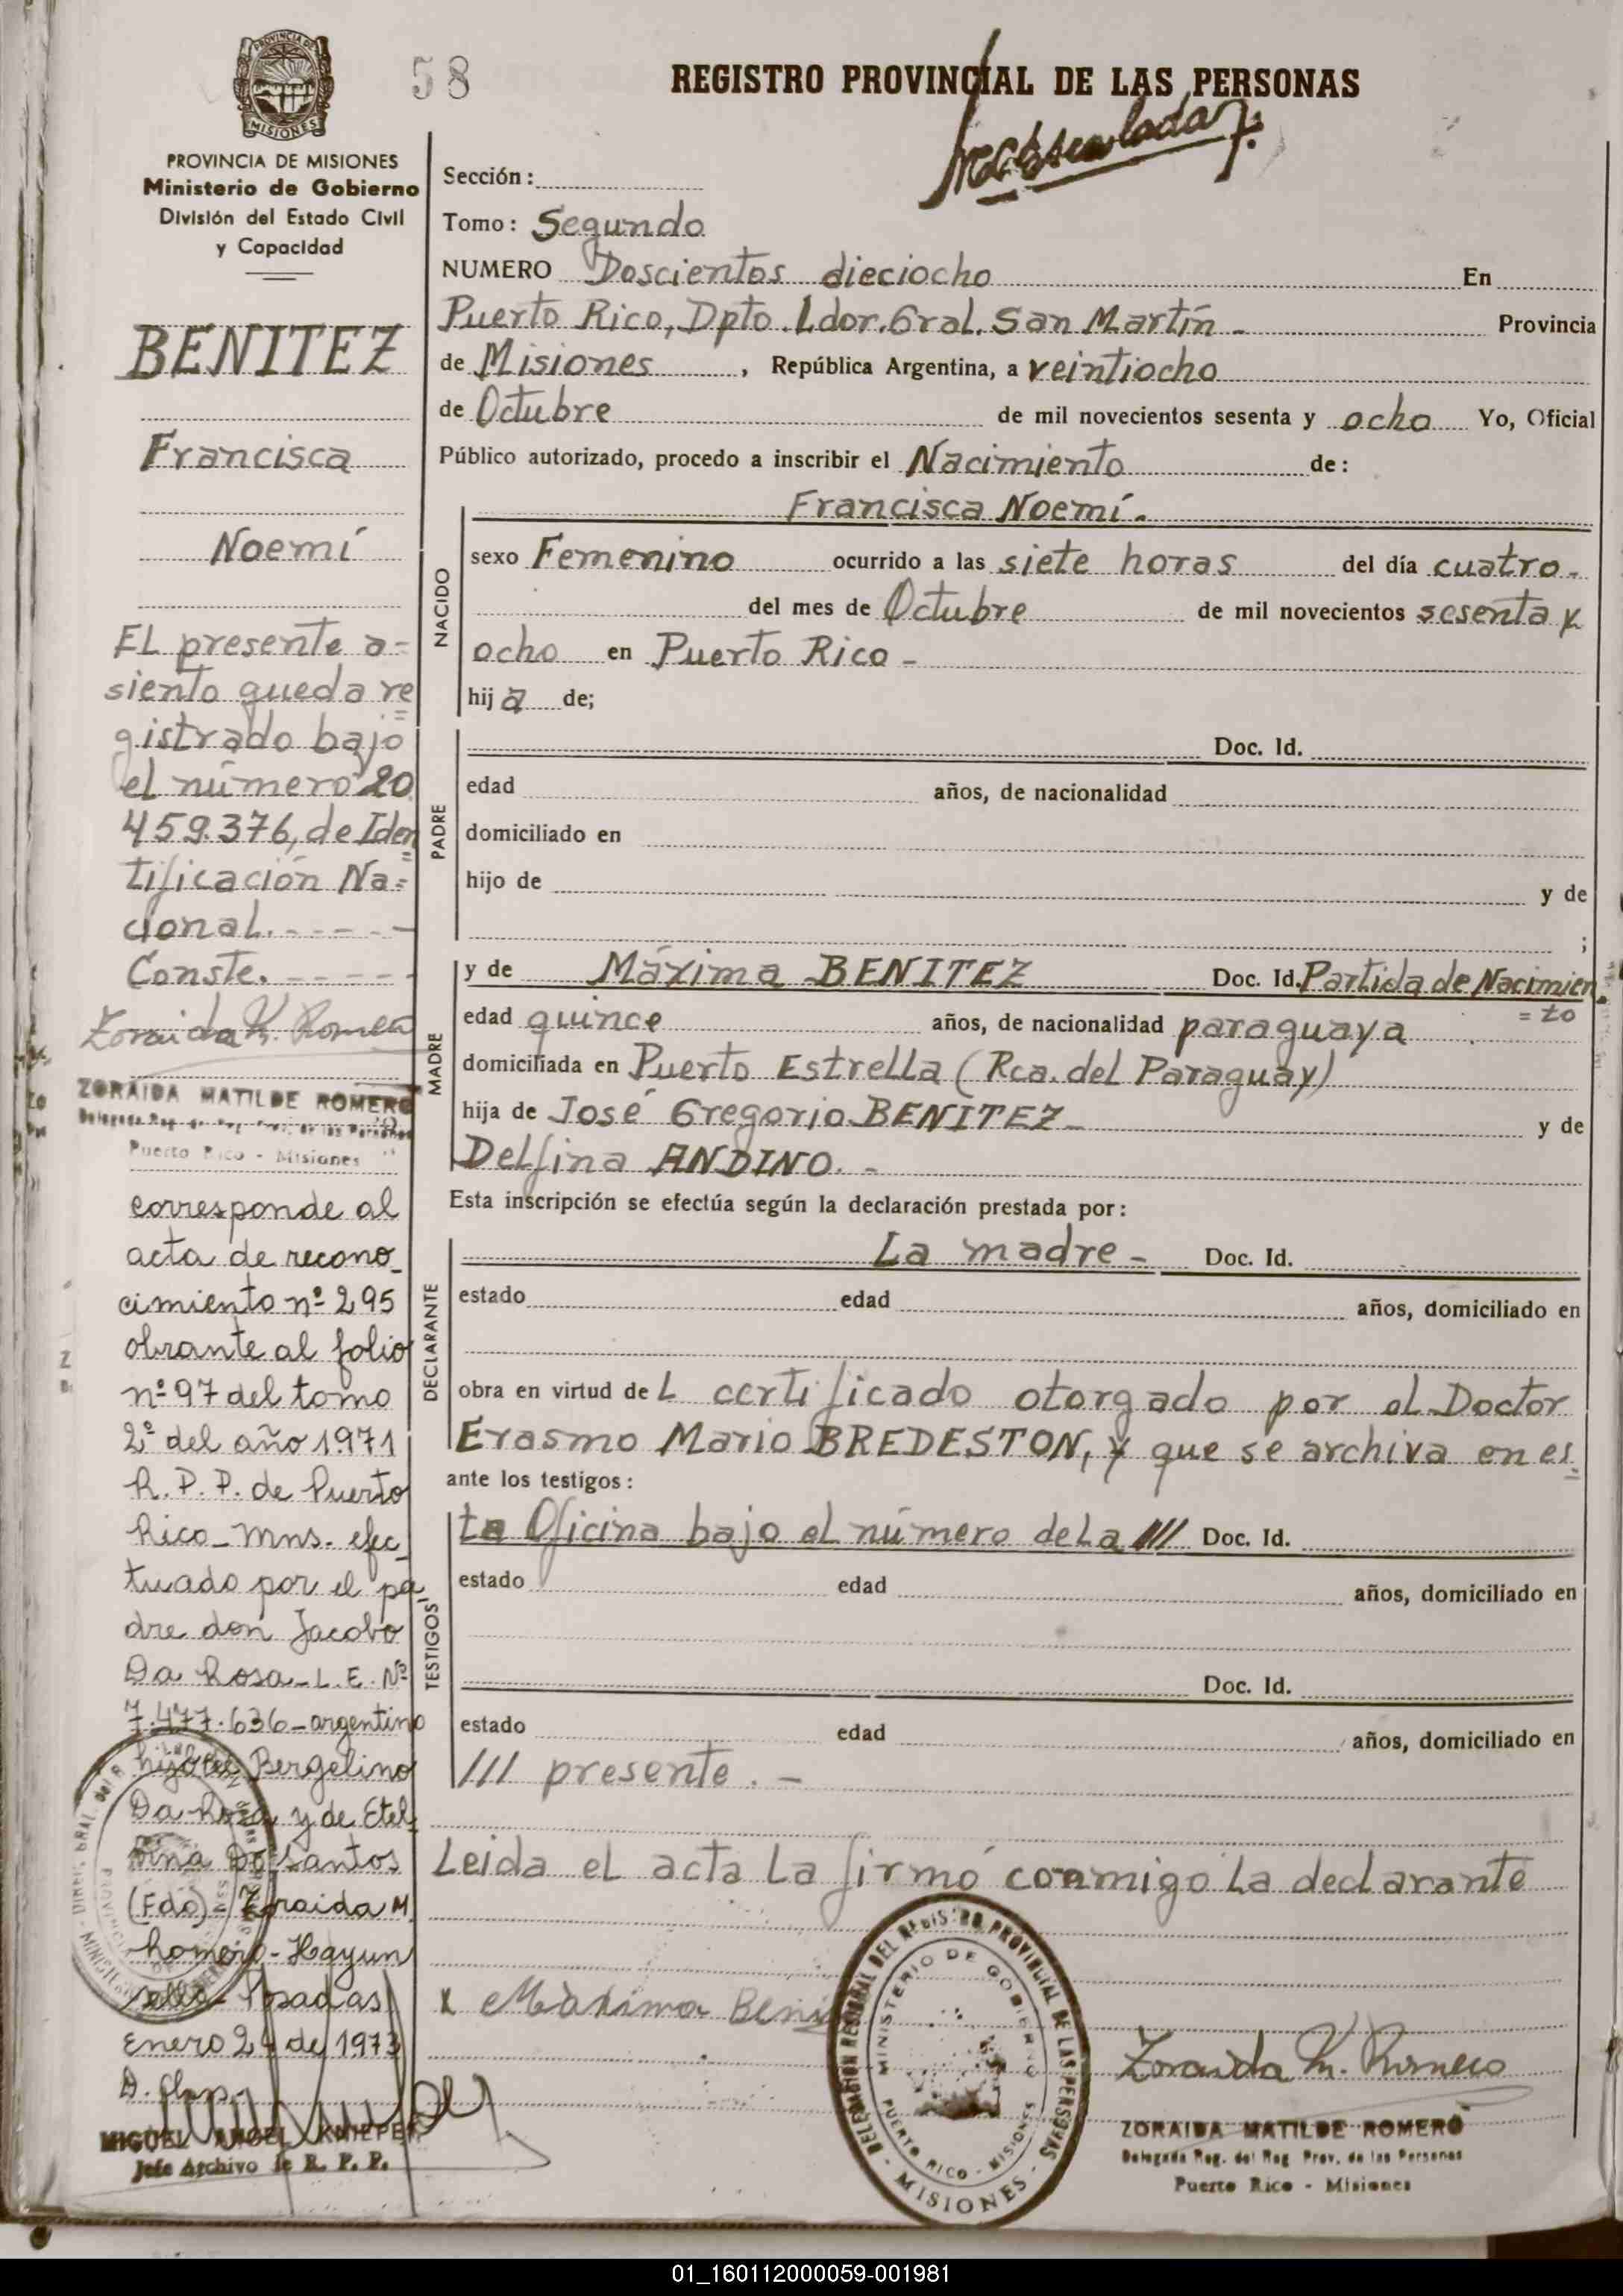 58
REGISTRO PROVINCIAL DE LAS PERSONAS
MISIONES
PROVINCIA DE MISIONES
Ministerio de Gobierno
División del Estado Civil
y Capacidad
BENITEZ
Francisca
Noemí
EL presente a=
siento queda re
=
gistrado bajo
el número 20
459.376, de Iden
=
tificación Na=
cional. - - - - -
Conste. - - - - -
Zoraida M. Romero
ZORAIDA MATILDE ROMERO
Delegada Reg. del Reg. Prov. de las Personas
Puerto Rico - Misiones
corresponde al
acta de recono_
cimiento nº 295
obrante al folio
nº 97 del tomo
2º del año 1971
R. P. P. de Puerto
Rico _ Mns. efec_
tuado por el pa
dre don Jacobo
Da Rosa _ L. E. Nº
7.477.636 _ argentino
hijo de Bergelino
Da Rosa y de Etel
vina Do Santos
(Fdo) Zoraida M.
Romero - Hay un
sello - Posadas
Enero 24 de 1973
MIGUEL ANGEL KNIEPER
Jefe Archivo de R. P. P.
Sección:
Tomo: Segundo
NUMERO Doscientos dieciocho En
Puerto Rico, Dpto. Ldor. Gral. San Martín - Provincia
de Misiones, República Argentina, a veintiocho
de Octubre de mil novecientos sesenta y ocho Yo, Oficial
Público autorizado, procedo a inscribir el Nacimiento de:
Francisca Noemí.
NACIDO
sexo Femenino ocurrido a las siete horas del día cuatro -
del mes de Octubre de mil novecientos sesenta y
ocho en Puerto Rico -
hij a de;
PADRE
Doc. Id.
edad años, de nacionalidad
domiciliado en
hijo de y de
;
MADRE
y de Máxima BENITEZ Doc. Id. Partida de Nacimien
= to
edad quince años, de nacionalidad paraguaya
domiciliada en Puerto Estrella (Rca. del Paraguay)
hija de José Gregorio BENITEZ - y de
Delfina ANDINO. -
Esta inscripción se efectúa según la declaración prestada por:
DECLARANTE
La madre - Doc. Id.
estado edad años, domiciliado en
obra en virtud de L certificado otorgado por el Doctor
Erasmo Mario BREDESTON, y que se archiva en es
=
ante los testigos:
TESTIGOS
ta Oficina bajo el número de La /// Doc. Id.
estado edad años, domiciliado en
Doc. Id.
estado edad años, domiciliado en
/// presente. -
Leida el acta La firmó conmigo La declarante
x Maxima Beni
DELEGACION REGIONAL DEL REGISTRO PROVINCIAL DE LAS PERSONAS
MINISTERIO DE GOBIERNO
PUERTO RICO - MISIONES
- MISIONES -
Zoraida M. Romero
ZORAIDA MATILDE ROMERO
Delegada Reg. del Reg. Prov. de las Personas
Puerto Rico - Misiones
01_160112000059-001981